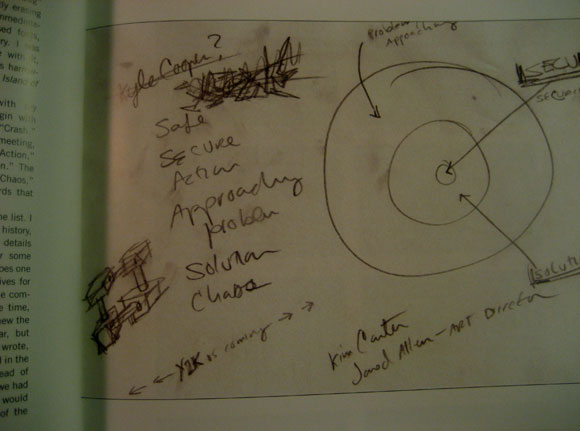 ly erasing
mmediate-
sedforth,
ry. I was
e with it,
s
Island of
with
gin with
"Crash."
meeting,
Action,"
n." The
Chaos,"
rds that
he list. I
history,
details
r some
oes one
ives for
e com-
e time,
new the
ar, but
wrote.
d in the
ead of
we had
would
of the
Kyle Cooper?
Safe
Secure
Action
Approaching
problem
Solution
Chaos
← ← Y2K is coming → →
Problem
Approaching
SECU
SECURI
SOLUTI
Kim Carter
Jarod Allen - Art Director